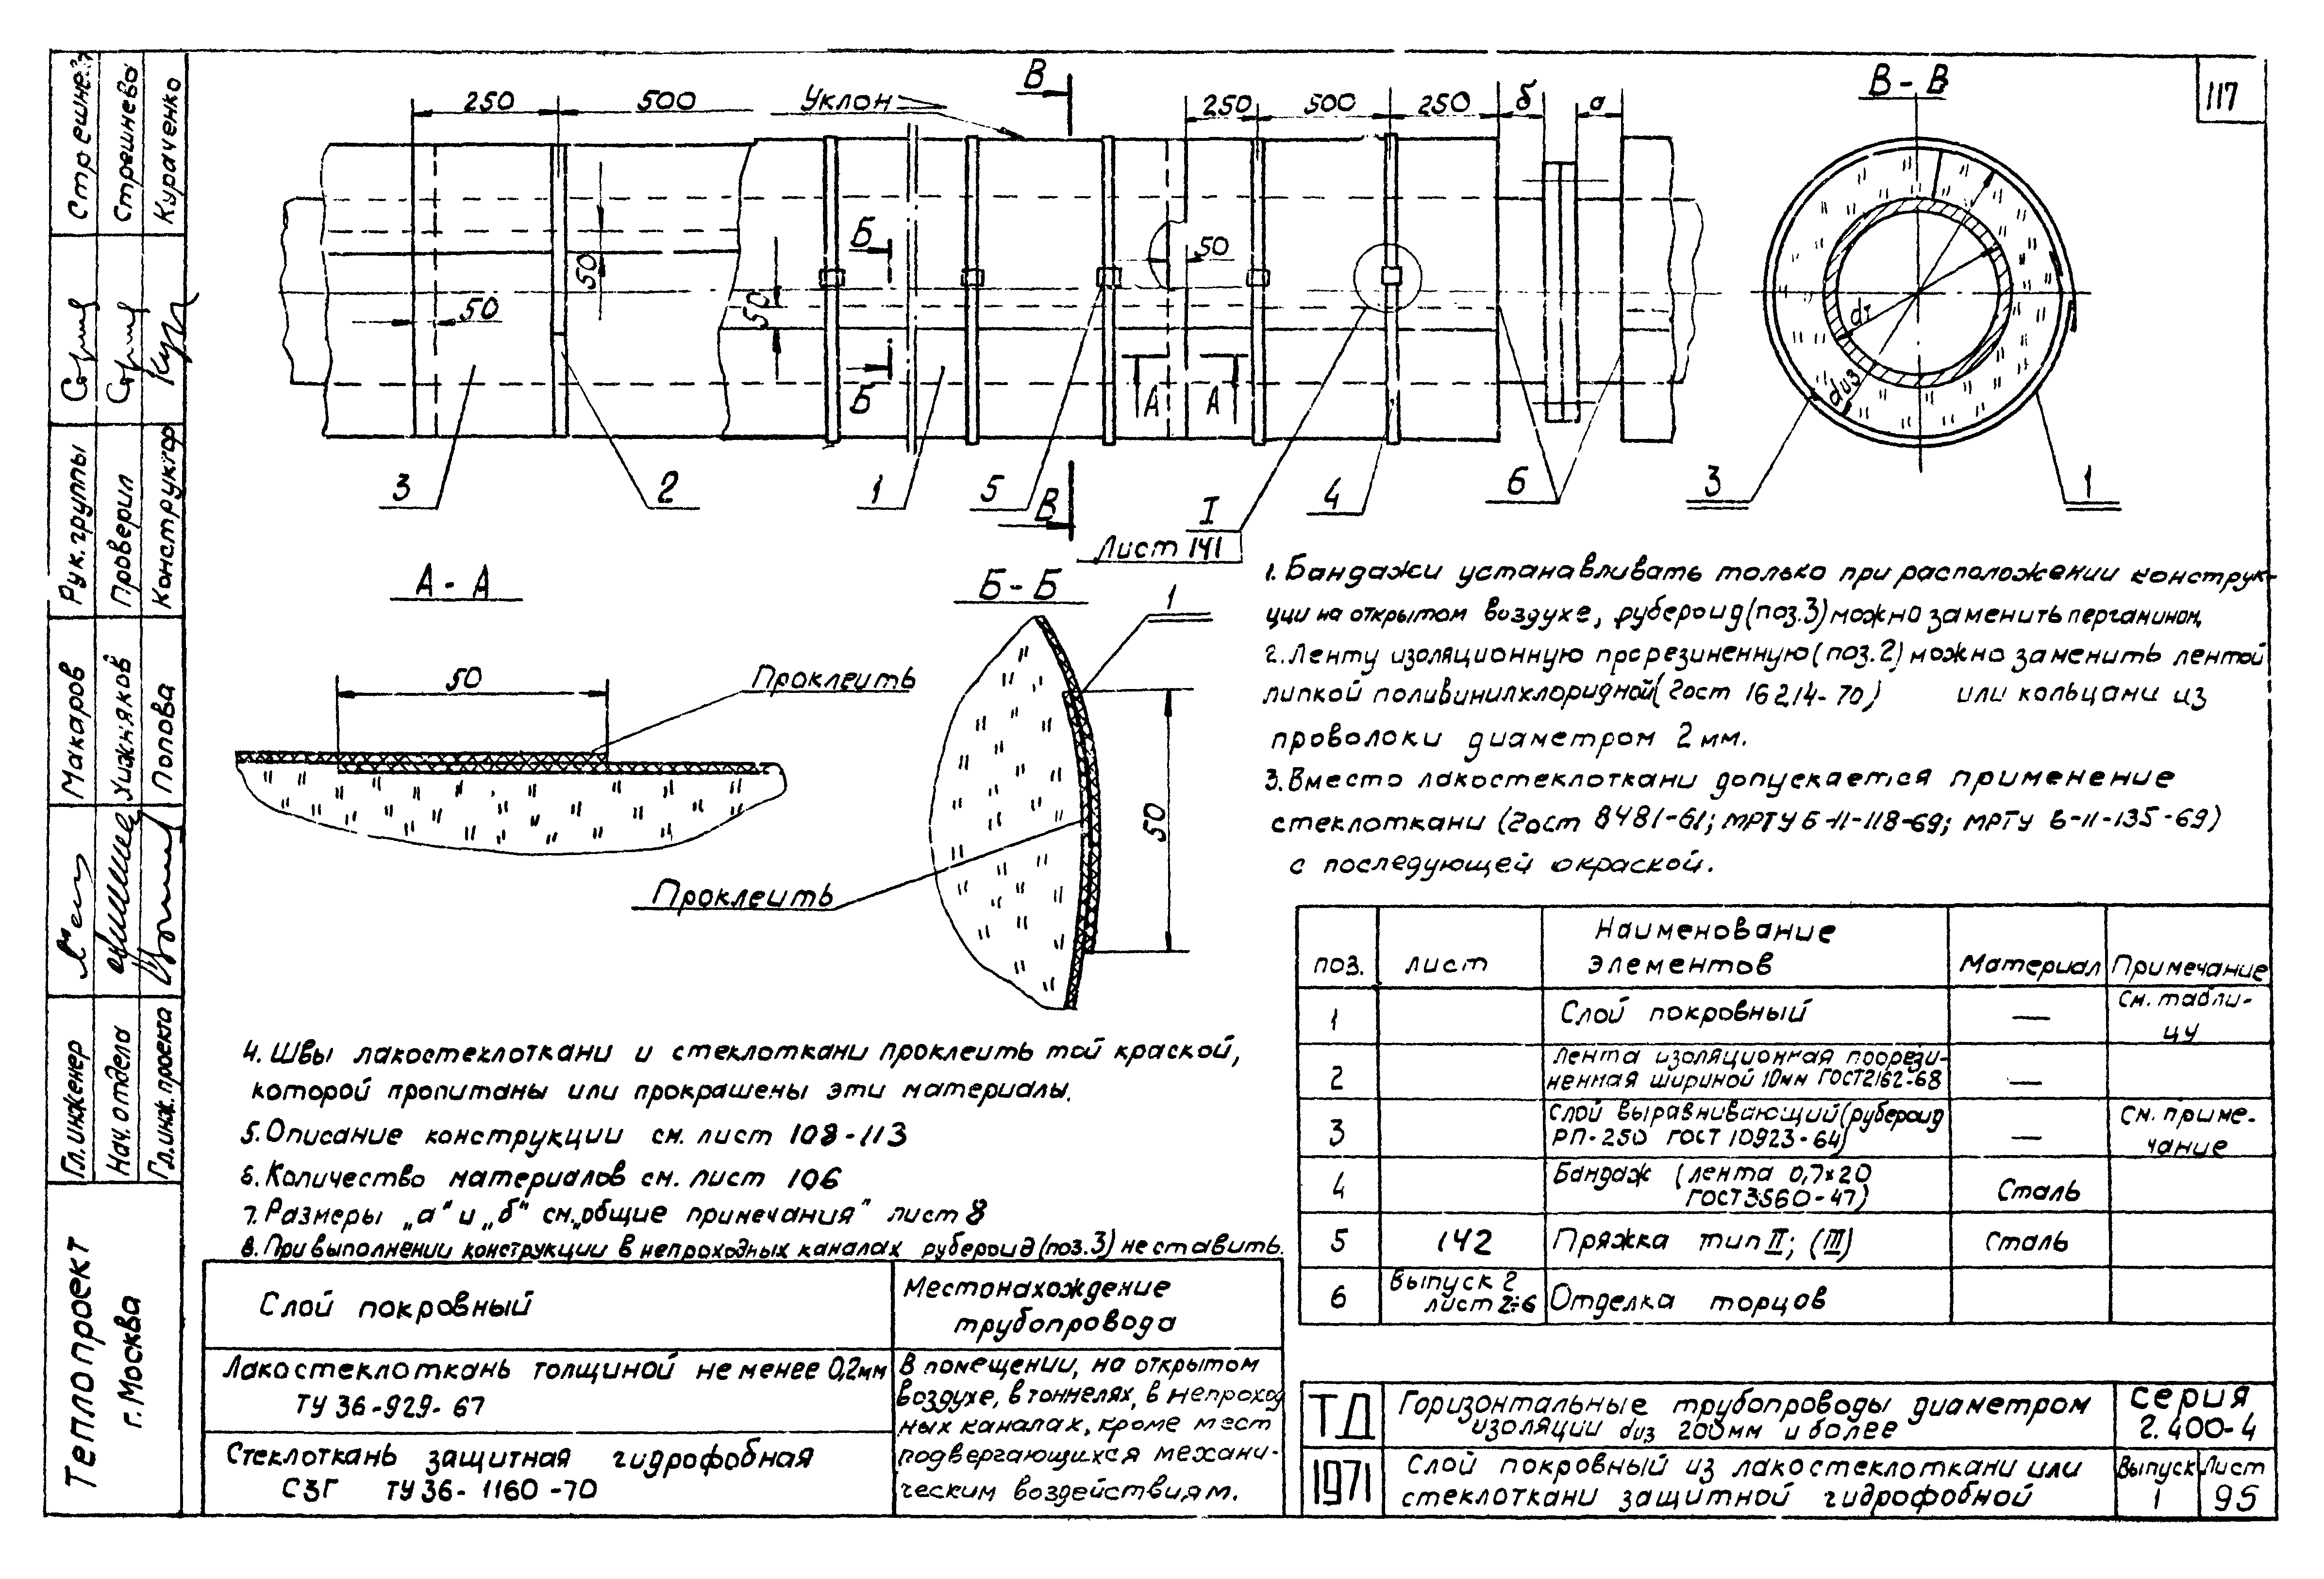 117
250
500
Уклон
В
250
500
250
б
а
В - В
Б
50
50
50
50
dт
dиз
Б
А
А
3
2
1
5
В
I
Лист 141
4
6
3
1
А - А
Б - Б
1
50
Проклеить
50
Проклеить
1. Бандажи устанавливать только при расположении конструк-
ции на открытом воздухе, рубероид (поз.3) можно заменить пергамином.
2. Ленту изоляционную прорезиненную (поз.2) можно заменить лентой
липкой поливинилхлоридной (Гост 16214-70) или кольцами из
проволоки диаметром 2 мм.
3. Вместо лакостеклоткани допускается применение
стеклоткани (Гост 8481-61; МРТУ 6-11-118-69; МРТУ 6-11-135-69)
с последующей окраской.
4. Швы лакостеклоткани и стеклоткани проклеить той краской,
которой пропитаны или прокрашены эти материалы.
5. Описание конструкции см. лист 108-113
6. Количество материалов см. лист 106
7. Размеры „а" и „б" см. „общие примечания" лист 8
8. При выполнении конструкции в непроходных каналах рубероид (поз.3) не ставить.
поз. лист Наименование элементов Материал Примечание
1 Слой покровный — См. табли-
цу
2 Лента изоляционная прорези-
ненная шириной 10мм ГОСТ 2162-68 —
3 Слой выравнивающий (рубероид
РП-250 ГОСТ 10923-64) — См. приме-
чание
4 Бандаж (лента 0,7х20
ГОСТ 3560-47) Сталь
5 142 Пряжка тип II; (III) Сталь
6 Выпуск 2
лист 2÷6 Отделка торцов
Слой покровный
Местонахождение
трубопровода
Лакостеклоткань толщиной не менее 0,2мм
ТУ 36-929-67
Стеклоткань защитная гидрофобная
СЗГ ТУ 36-1160-70
В помещении, на открытом
воздухе, в тоннелях, в непроход
ных каналах, кроме мест
подвергающихся механи-
ческим воздействиям.
ТД
1971
Горизонтальные трубопроводы диаметром
изоляции dиз 200мм и более
Слой покровный из лакостеклоткани или
стеклоткани защитной гидрофобной
серия
2.400-4
Выпуск
1
Лист
95
Теплопроект
г. Москва
Гл. инженер Макаров
Нач. отдела Хижняков
Гл. инж. проекта Попова
Рук. группы
Проверил Стрешнева
Конструктор Кураченко